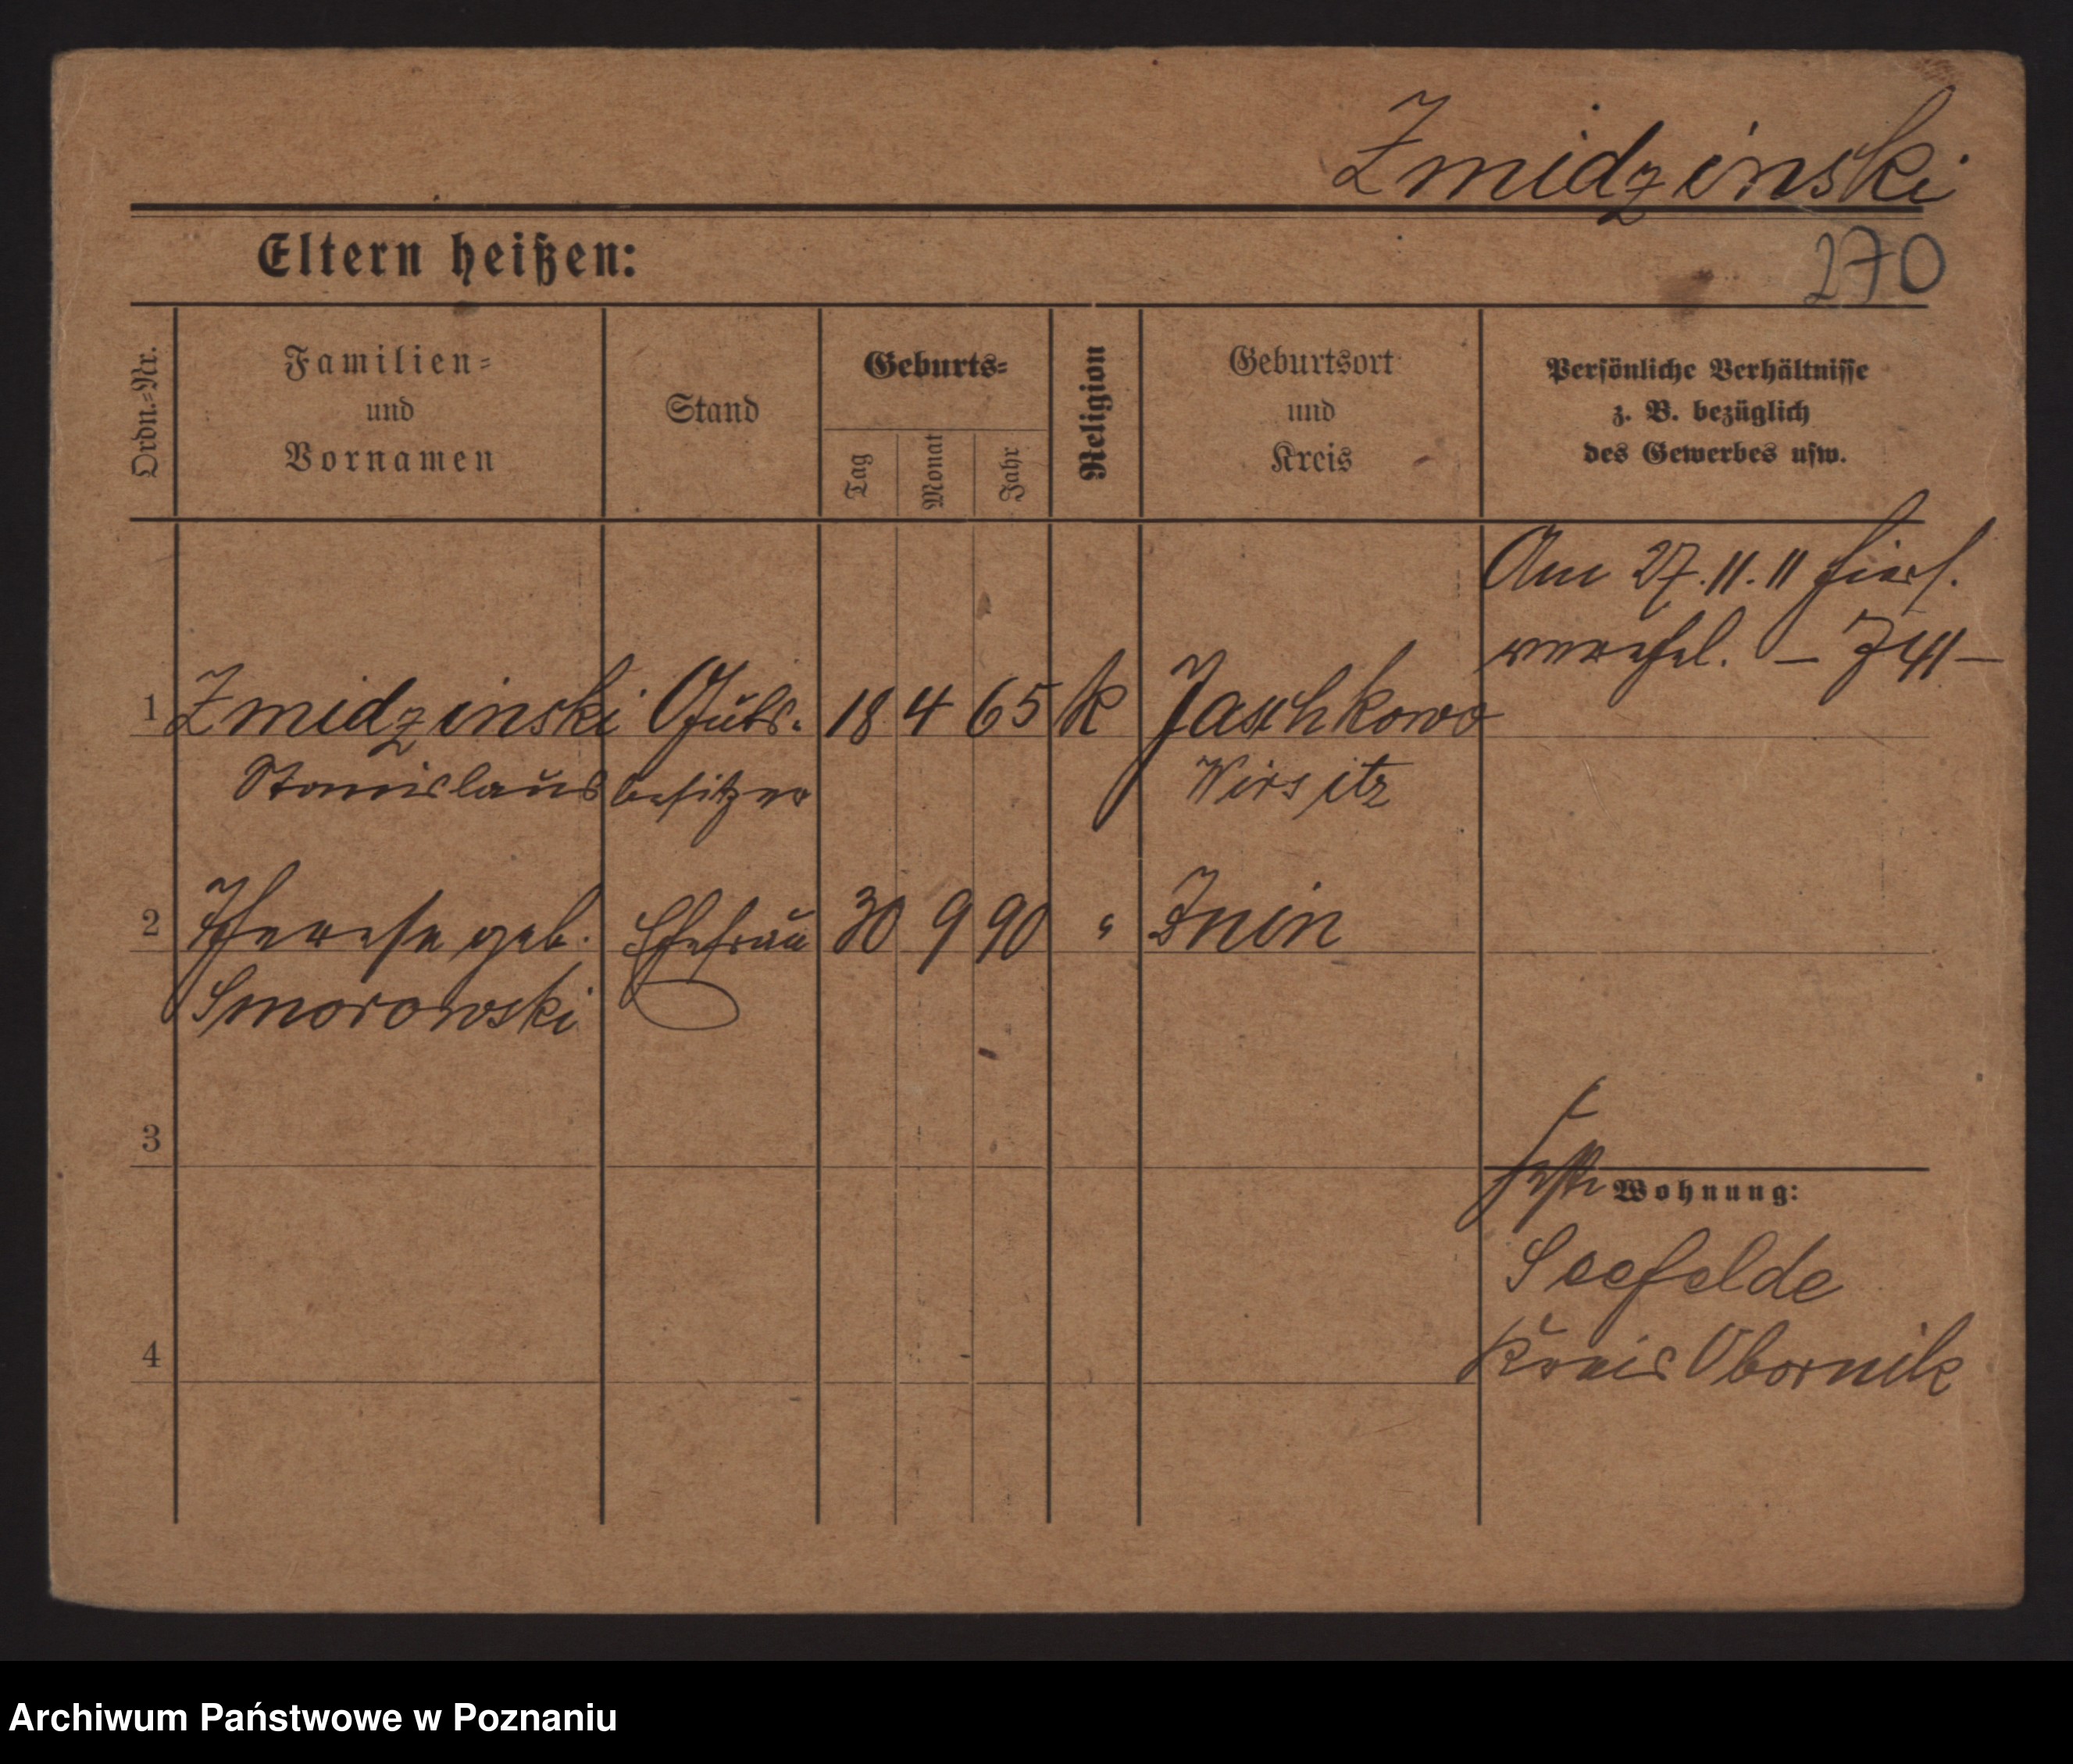 Zmidzinski
Eltern heißen:
270
Ordn.-Nr.
Familien-
und
Vornamen
Stand
Geburts-
Tag
Monat
Jahr
Religion
Geburtsort
und
Kreis
Persönliche Verhältnisse
z. B. bezüglich
des Gewerbes usw.
Am 27.11.11 hiers.
verehel.
1 Zmidzinski Guts- 18 4 65 k Jaschkowo
Stanislaus besitzer Wirsitz
2 Therese geb. Ehefrau 30 9 90 " Znin
Smorowski
3
Wohnung:
Seefelde
Kreis Obornik
4
Archiwum Państwowe w Poznaniu